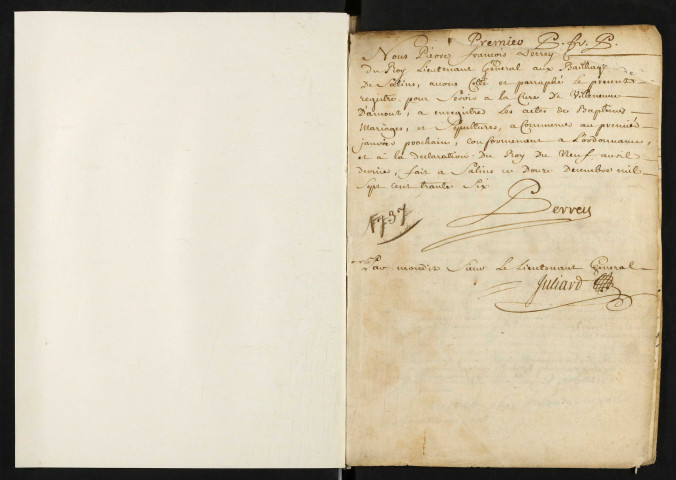 Premier P. fr. P.
Nous Pierre François Perrey
du Roy Lieutenant General aux Bailliage
de Salins, avons Cotté et parraphé le present
registre pour servir a la Cure de Villeneuve
Damont, a enregistrer les actes de Baptemes
Mariages, et Sepultures, a Commencer au premier
janvier prochain, conformement a L'ordonnance,
et a la declaration du Roy du Neuf avril
dernier, fait a Salins ce Douze Decembre mil
Sept Cent trante Six
Perrey
1737
Par mondit Sieur Le Lieutenant General
Juliard